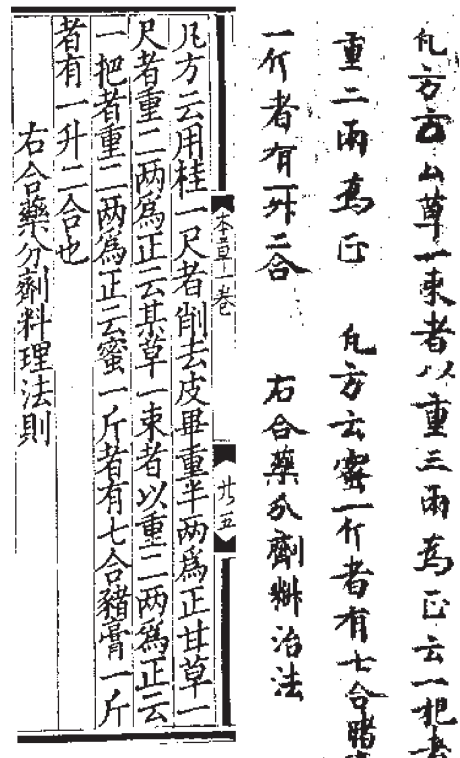 凡方云厶草一束者以重三兩為正云一把者
重二兩為正　凡方云蜜一斤者有七合猪
一斤者有一升二合　右合藥分劑料治法
本草一卷　廿五
凡方云用桂一尺者削去皮畢重半两為正甘草一
尺者重二两為正云某草一束者以重二两為正云
一把者重二两為正云蜜一斤者有七合豬膏一斤
者有一升二合也
右合藥分劑料理法則